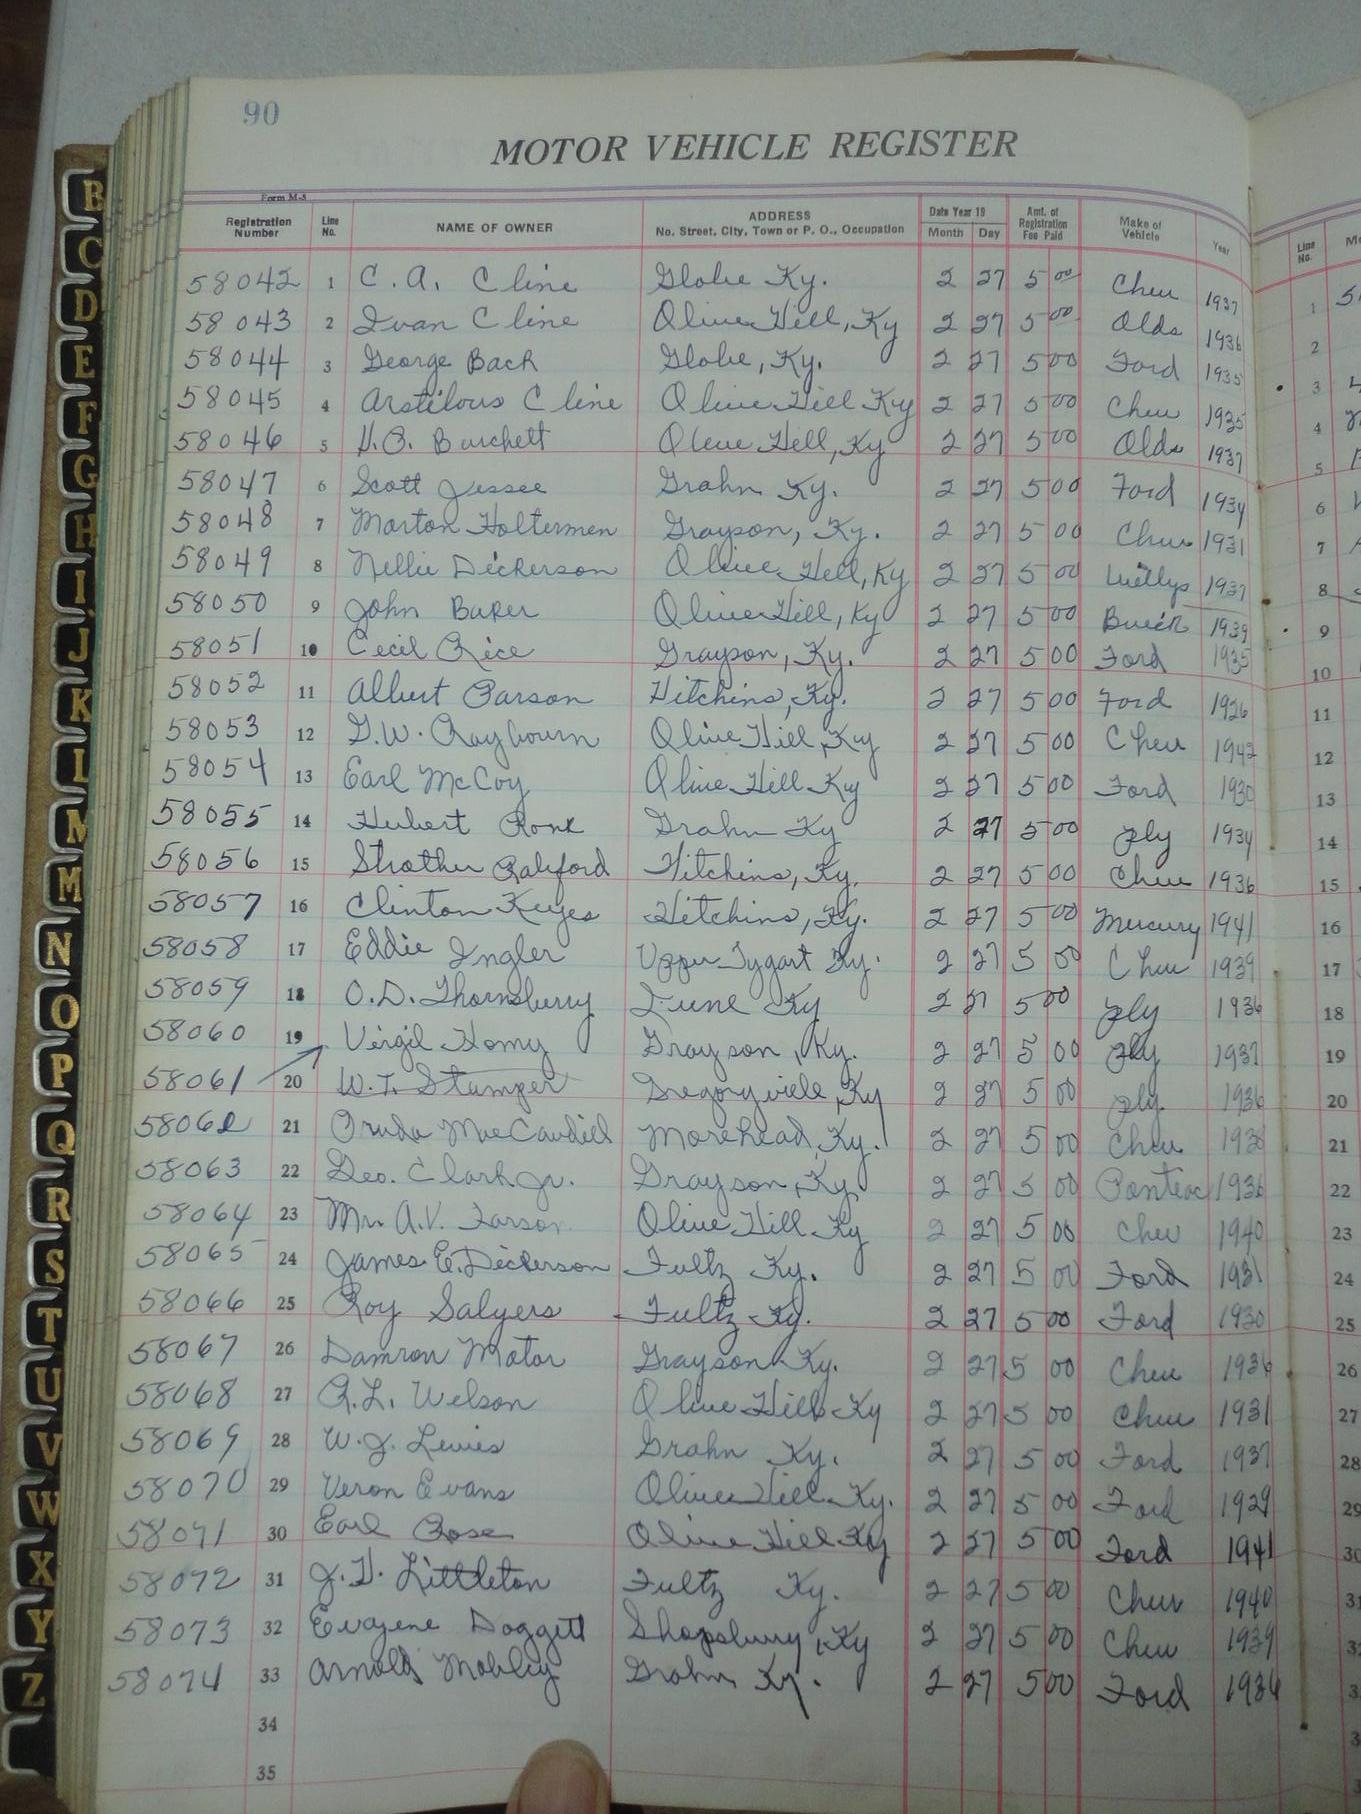 90
MOTOR VEHICLE REGISTER
Form M-5
Registration Number Line No. NAME OF OWNER ADDRESS No. Street, City, Town or P. O., Occupation Date Year 19 Month Day Amt. of Registration Fee Paid Make of Vehicle Year Line No.
58042 1 C. A. Cline Globe Ky. 2 27 5 00 Chev 1937
58043 2 Ivan Cline Olive Hill, Ky 2 27 5 00 Olds 1936
58044 3 George Back Globe, Ky. 2 27 5 00 Ford 1935
58045 4 Arstilous Cline Olive Hill Ky 2 27 5 00 Chev 1935
58046 5 H.B. Burchett Olive Hill, Ky 2 27 5 00 Olds 1937
58047 6 Scott Jessee Grahn Ky. 2 27 5 00 Ford 1934
58048 7 Marton Holtermen Grayson, Ky. 2 27 5 00 Chev 1931
58049 8 Nellie Dickerson Olive Hill, Ky 2 27 5 00 Willys 1937
58050 9 John Baker Olive Hill, Ky 2 27 5 00 Buick 1939
58051 10 Cecil Rice Grayson, Ky. 2 27 5 00 Ford 1935
58052 11 Albert Parson Hitchins, Ky. 2 27 5 00 Ford 1926
58053 12 G.W. Raybourn Olive Hill, Ky 2 27 5 00 Chev 1942
58054 13 Earl McCoy Olive Hill Ky 2 27 5 00 Ford 1930
58055 14 Hubert Ronk Grahn Ky 2 27 5 00 Ply 1934
58056 15 Strother Hitchins, Ky. 2 27 5 00 Chev 1936
58057 16 Clinton Keyes Hitchins, Ky. 2 27 5 00 Mercury 1941
58058 17 Eddie Ingler Upper Tygart Ky. 2 27 5 00 Chev 1939
58059 18 O.D. Thornsburry Ky 2 27 5 00 Ply 1936
58060 19 Virgil Ky. 2 27 5 00 Ply 1937
58061 20 W.T. Stamper Gregoryville, Ky 2 27 5 00 Ply. 1936
58062 21 MacCaudill Morehead, Ky. 2 27 5 00 Chev 1938
58063 22 Geo. Clark Jr. Grayson, Ky. 2 27 5 00 Pontiac 1936
58064 23 Mr. A.V. Olive Hill Ky 2 27 5 00 Chev 1940
58065 24 James E. Dickerson Fultz Ky. 2 27 5 00 Ford 1931
58066 25 Roy Salyers Fultz Ky. 2 27 5 00 Ford 1930
58067 26 Damron Motor Grayson Ky. 2 27 5 00 Chev 1936
58068 27 R.L. Welson Olive Hill Ky 2 27 5 00 Chev 1931
58069 28 W.J. Lewis Grahn Ky. 2 27 5 00 Ford 1937
58070 29 Veron Evans Olive Hill Ky. 2 27 5 00 Ford 1929
58071 30 Earl Rose Olive Hill Ky 2 27 5 00 Ford 1941
58072 31 J.H. Littleton Fultz Ky. 2 27 5 00 Chev 1940
58073 32 Eugene Doggett Ky 2 27 5 00 Chev 1939
58074 33 Arnold Mobley Grahn Ky. 2 27 5 00 Ford 1936
34
35
B
C
D
E
F
G
H
I
J
K
L
M
M
N
O
P
Q
R
S
T
U
V
W
X
Y
Z